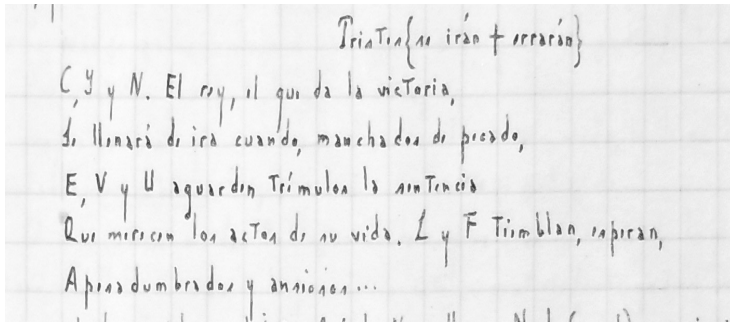 Tristes{se irán + errarán}
C, Y y N. El rey, el que da la victoria,
Se llenará de ira cuando, manchados de pecado,
E, V y U aguarden trémulos la sentencia
Que merecen los actos de su vida. L y F tiemblan, esperan,
Apesadumbrados y ansiosos...